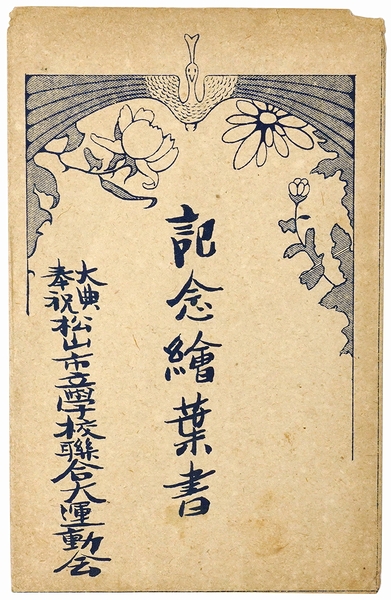 記念繪葉書
大典奉祝
松山市立學校聯合大運動会